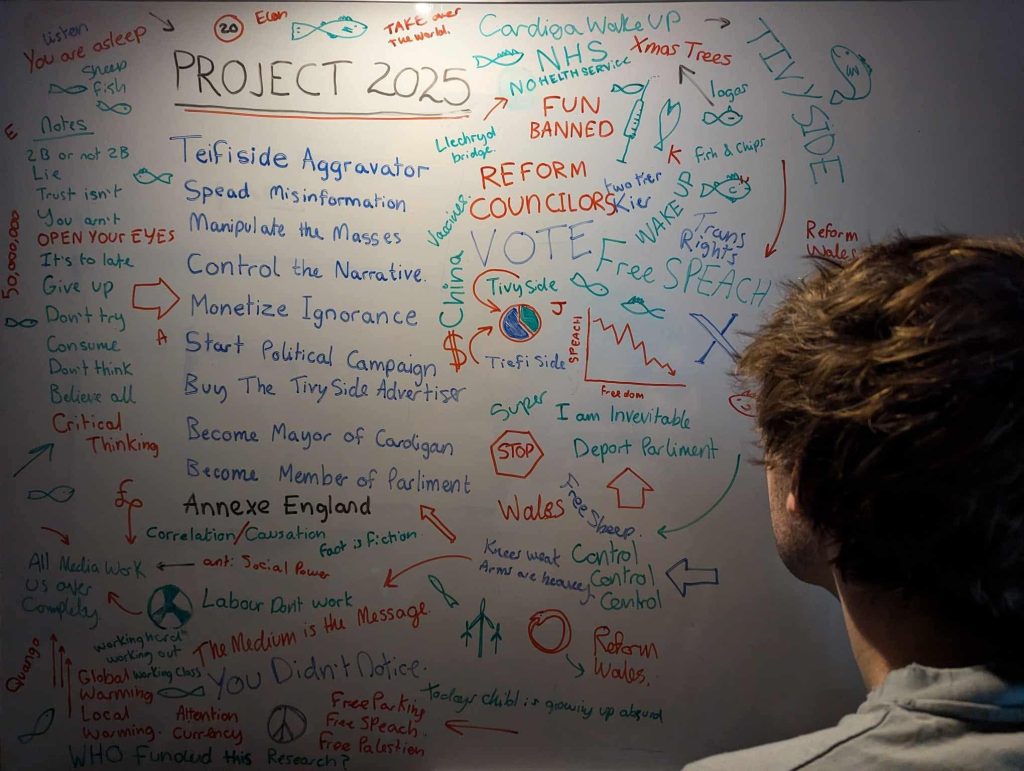 listen
You are asleep
sheep
fish
20
Econ
TAKE over
the World.
PROJECT 2025
Cardiga Wake UP
NHS
NO HELTH SERVICE
Xmas Trees
logas
TIVYSIDE
FUN
BANNED
Llechryd
bridge.
E
Notes
2B or not 2B
Lie
Trust isn't
You ain't
OPEN YOUR EYES
It's to late
Give up
Don't try
Consume
Don't think
Believe all
Critical
Thinking
50,000,000
A
Teifiside Aggravator
Spead Misinformation
Manipulate the Masses
Control the Narrative.
Monetize Ignorance
Start Political Campaign
Buy The TivySide Advertiser
Become Mayor of Cardigan
Become Member of Parliment
Annexe England
REFORM
COUNCILORS
two tier
Kier
K
Fish & Chips
WAKE UP
Trans
Rights
Reform
Wales
Vaccines
VOTE
Free SPEACH
$China
TivySide
J
Tiefi Side
SPEACH
Freedom
X
Super
I am Invevitable
STOP
Deport Parliment
Wales
Free Sheep.
£
Correlation/Causation
Fact is Fiction
Knees weak
Arms are heavey
Control
Control
Control
All Media Work
Us over
Completly
anti Social Power
Labour Dont work
The Medium is the Message.
"working hard"
working out
working Class
You Didn't Notice.
Reform
Wales.
Quango
Global
Warming
Local
Warming.
Attention
Currency
Free Parking
Free Speach.
Free Palestion
todays child is growing up absurd
WHO Funded this Research?